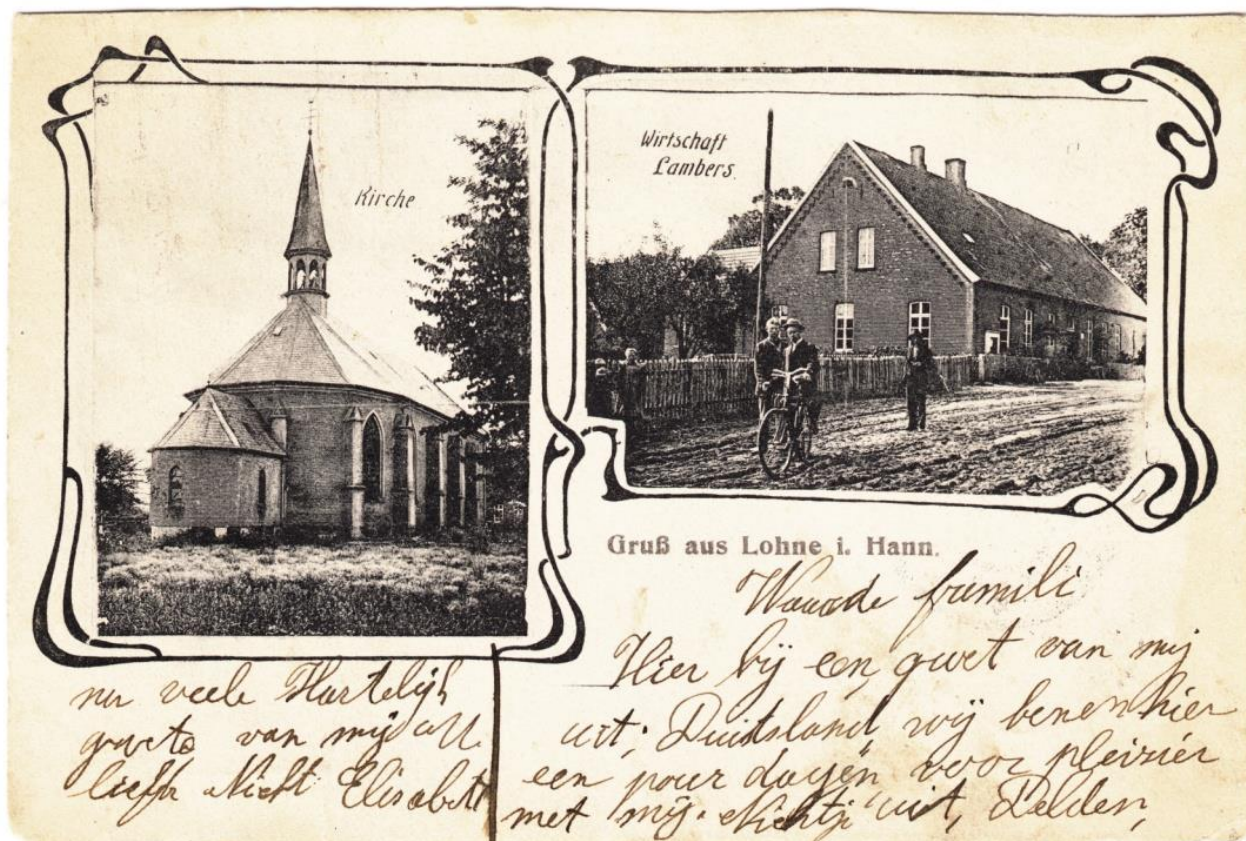 Kirche
Wirtschaft
Lambers.
Gruß aus Lohne i. Hann.
Waarde famili
Hier bij een gwet van mij
uit, Duitsland, wij benen hier
een pour dagen voor pleizier
met mij Nichtje uit, Delden,
nu veele Hartelijk
gwets van mij
liefh Nicht Elisabett